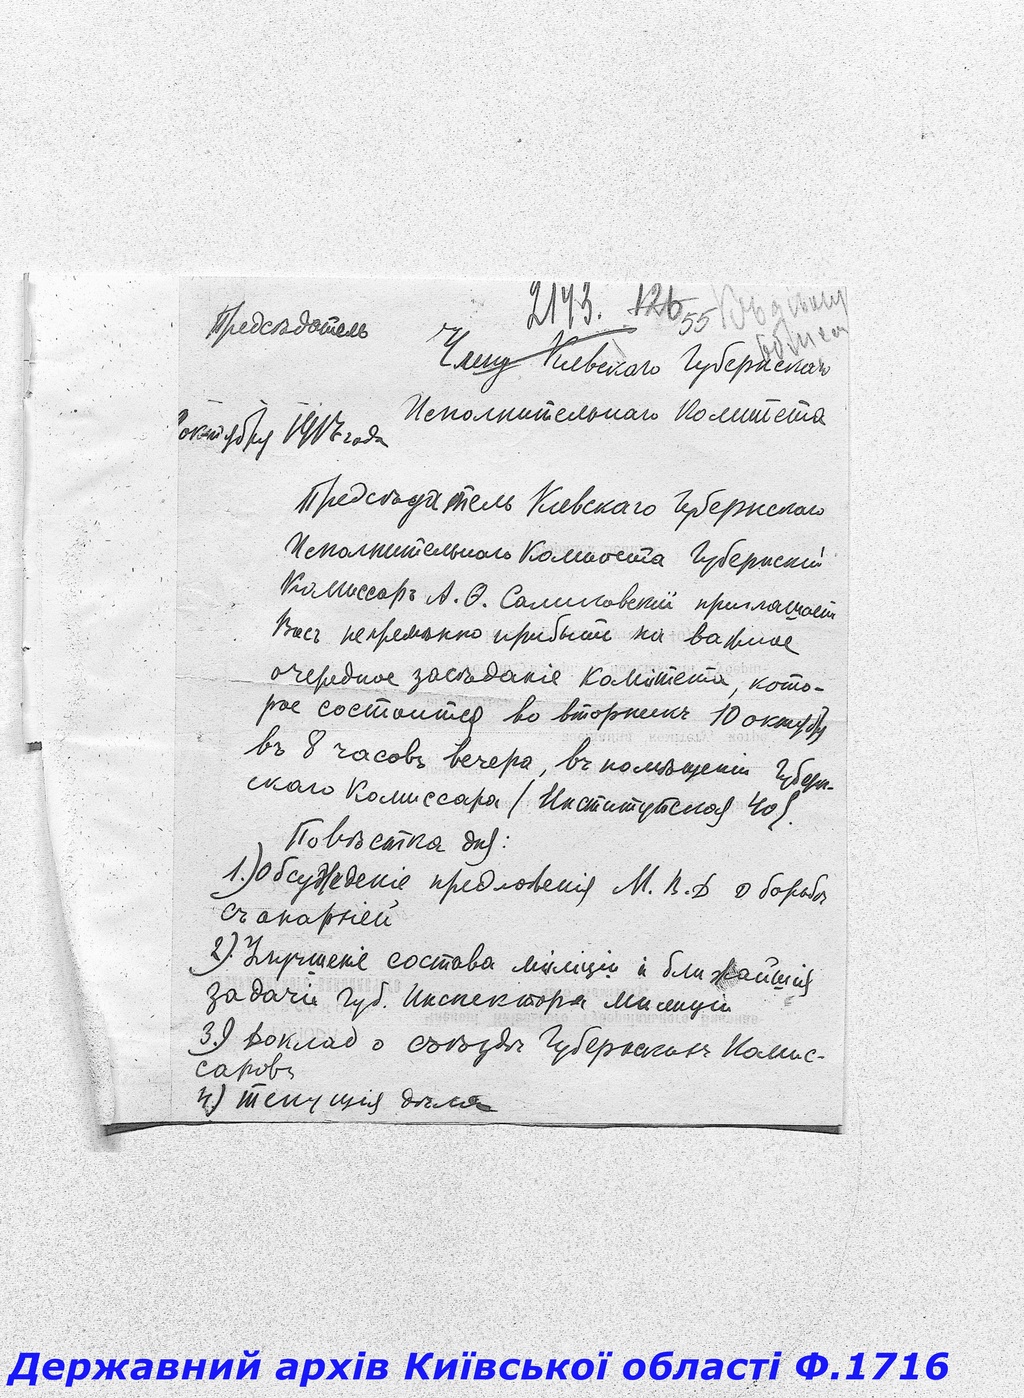 2173. 126 55
Предсѣдатель
Члену Кіевскаго Губернскаго
Исполнительнаго Комитета
октября 1917 года
Предсѣдатель Кіевскаго Губернскаго
Исполнительнаго Комитета Губернскій
Комиссаръ А. Ѳ. Саликовскій приглашаетъ
Васъ непремѣнно прибыть на важное
очередное засѣданіе Комитета, кото-
рое состоится во вторникъ 10 октября
въ 8 часовъ вечера, въ помѣщеніи Губерн-
скаго Комиссара / Институтская 40/.
Повѣстка дня:
1.) Обсужденіе предложенія М. В. Д о борьбѣ
съ анархіей
2). Улучшеніе состава милиціи и ближайшія
задачи Губ. Инспектора Милиціи
3.) Доклад о съѣздѣ Губернскихъ Комис-
саровъ
4) текущія дѣла
Державний архів Київської області Ф.1716